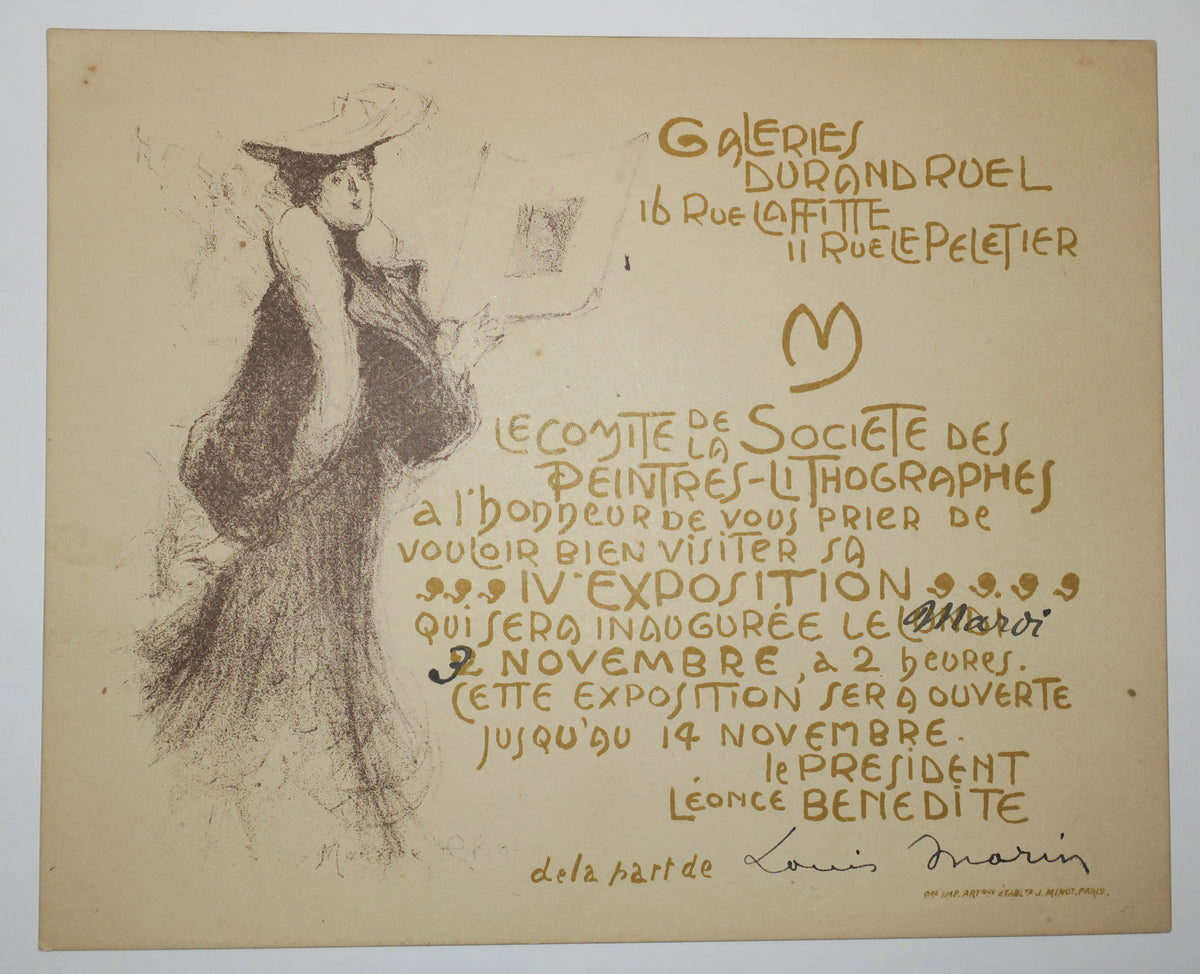 GALERIES
DURAND RUEL
16 RUE LAFFITTE
11 RUE LE PELETIER
M
LE COMITE DE LA SOCIETE DES
PEINTRES-LITHOGRAPHES
a l'honneur DE VOUS PRIER DE
VOULOIR BIEN VISITER SA
IVe EXPOSITION
QUI SERA INAUGURÉE LE Mardi
3 NOVEMBRE, à 2 heures.
CETTE EXPOSITION SERA OUVERTE
JUSQU'AU 14 NOVEMBRE.
le PRESIDENT
LÉONCE BENEDITE
de la part de Louis Morin
GDE IMP. ARTQUE ÉTABLTS J. MINOT, PARIS.